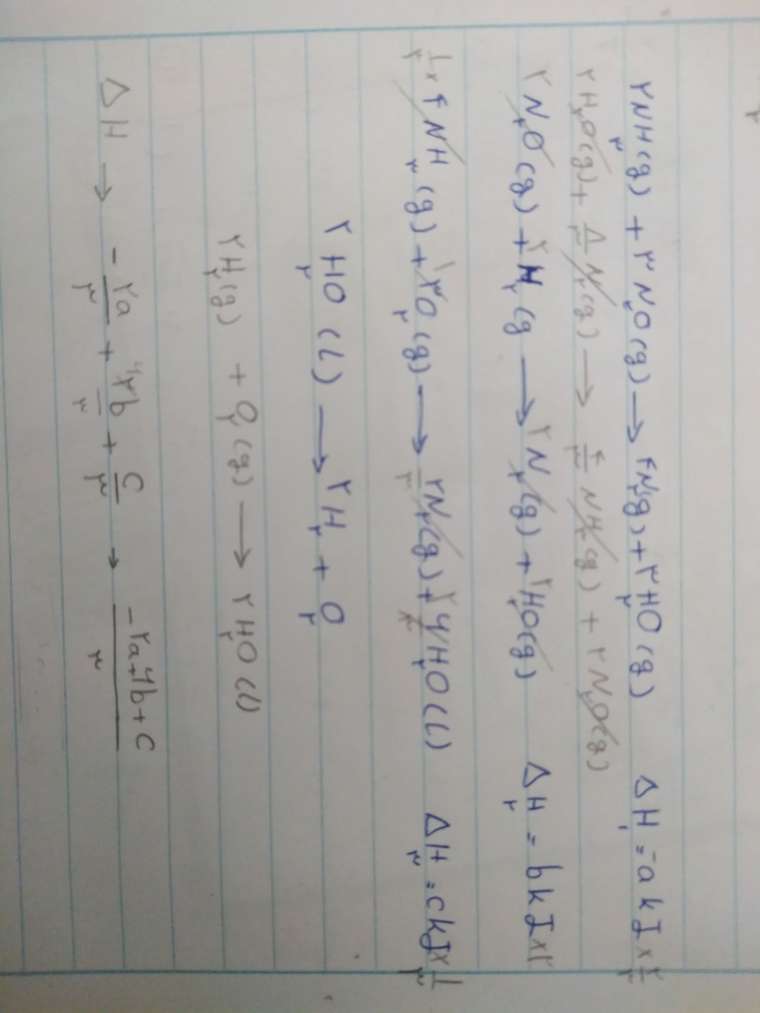 ۲NH۳(g) + ۳N۲O(g) → ۴N۲(g) + ۳H۲O(g) ΔH۱ = a kJ × ۲/۳
۲H۲O(g) + ۸/۳ N۲(g) → ۴/۳ NH۳(g) + ۲N۲O(g)
۲N۲O(g) + ۲H۲(g → ۲N۲(g) + ۲H۲O(g) ΔH۲ = b kJ × ۲
۱/۳ × ۴NH۳(g) + ۳O۲(g) → ۲N۲(g) + ۶H۲O(l) ΔH۳ = c kJ × ۱/۳
۲H۲O(l) → ۲H۲ + O۲
۲H۲(g) + O۲(g) → ۲H۲O(l)
ΔH → -۲a/۳ + ۶b/۳ + c/۳ → -۲a+۶b+c/۳